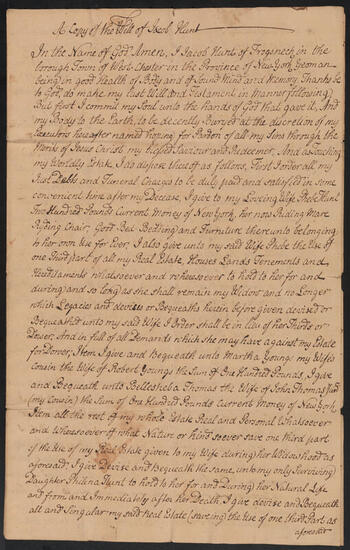 A Copy of the Will of Jacob Hunt
In the Name of God Amen, I Jacob Hunt of Frogsneck in the
borrough Town of West Chester in the Province of New York Yeoman
being in good Health of Body and of Sound Mind and Memory Thanks be
to God do make my last Will and Testament in Manner following)
But first I commit my Soul unto the hands of God that gave it, And
my Body to the Earth, to be decently Buryed at the discretion of my
Executors hereafter named hoping for Pardon of all my Sins through the
Merits of Jesus Christ my blessed Saviour and Redeemer, And as touching
my Worldly Estate, I do dispose thereof as follows, First I order all my
Just Debts and Funeral Charges to be duly paid and satisfied in some
convenient time after my Decease, I give to my Loveing Wife Phebe Hunt
One Hundred Pounds Current Money of New York, her now Riding Mare
Ryding Chair, Good Bed Bedding) and Furniture thereunto belonging
to her own Use for Ever, I also give unto my said Wife Phebe the Use of
One Third part of all my Real Estate, Houses Lands Tenements and
Hereditaments whatsoever and wheresoever to hold to her for and
during) and so long as she shall remain my Widow and no Longer
which Legacies and devises or Bequeaths herein before given devised or
Bequeathed unto my said Wife I Order shall be in lieu of her Thirds or
Dower, And in full of all Demands which she may have against my Estate
for Dower, Item I give and Bequeath unto Martha Young my Wife's
Cousin the Wife of Robert Youngs the Sum of One Hundred Pounds, I give
and Bequeath unto Beltesheba Thomas the Wife of John Thomas
(my Cousin) the Sum of One Hundred Pounds Current Money of New York,
Item all the rest of my whole Estate Real and Personal Whatsoever
and Wheresoever of what Nature or kind soever save one third part
of the Use of my Real Estate given to my Wife during) her Widowhood as
aforesaid, I give Devise and Bequeath the same, unto my only Surviving)
Daughter Philena Hunt to hold to her for and During) her Natural Life
and from and Immediately after her Death I give devise and Bequeath
all and Singular my said Real Estate (saveing) the Use of one Third Part as
aforesaid